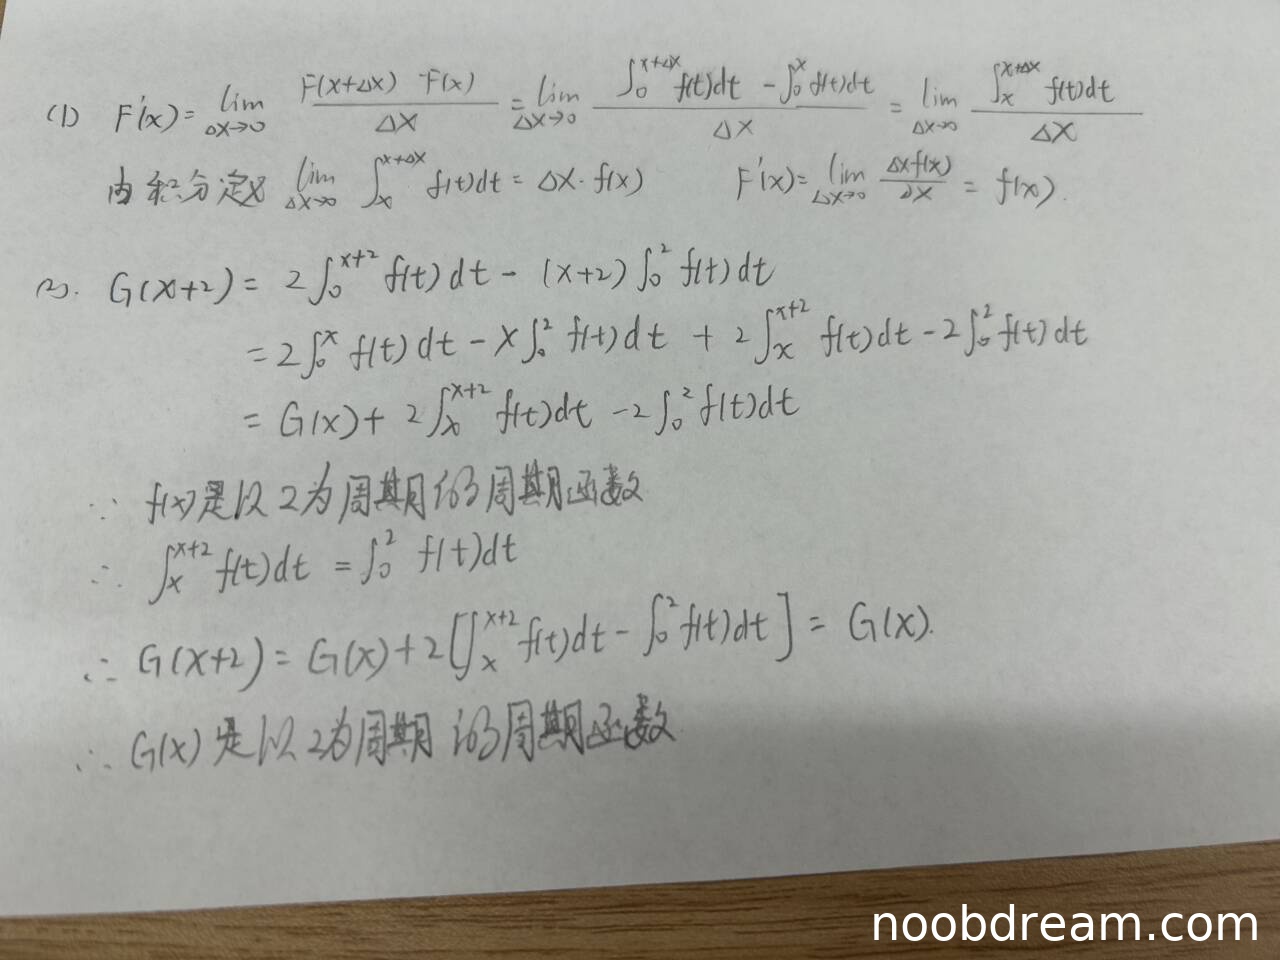 (1) F'(x) = lim_{Δx→0} \frac{F(x+Δx) F(x)}{Δx} = lim_{Δx→0} \frac{∫_0^{x+Δx} f(t)dt - ∫_0^x f(t)dt}{Δx} = lim_{Δx→0} \frac{∫_x^{x+Δx} f(t)dt}{Δx}
由积分定义 lim_{Δx→0} ∫_x^{x+Δx} f(t)dt = Δx · f(x) F'(x) = lim_{Δx→0} \frac{Δx f(x)}{Δx} = f(x).
(2). G(x+2) = 2∫_0^{x+2} f(t)dt - (x+2)∫_0^2 f(t)dt
= 2∫_0^x f(t)dt - x∫_0^2 f(t)dt + 2∫_x^{x+2} f(t)dt - 2∫_0^2 f(t)dt
= G(x) + 2∫_x^{x+2} f(t)dt - 2∫_0^2 f(t)dt
∵ f(x)是以2为周期的周期函数
∴ ∫_x^{x+2} f(t)dt = ∫_0^2 f(t)dt
∴ G(x+2) = G(x) + 2[∫_x^{x+2} f(t)dt - ∫_0^2 f(t)dt] = G(x).
∴ G(x)是以2为周期的周期函数
noobdream.com